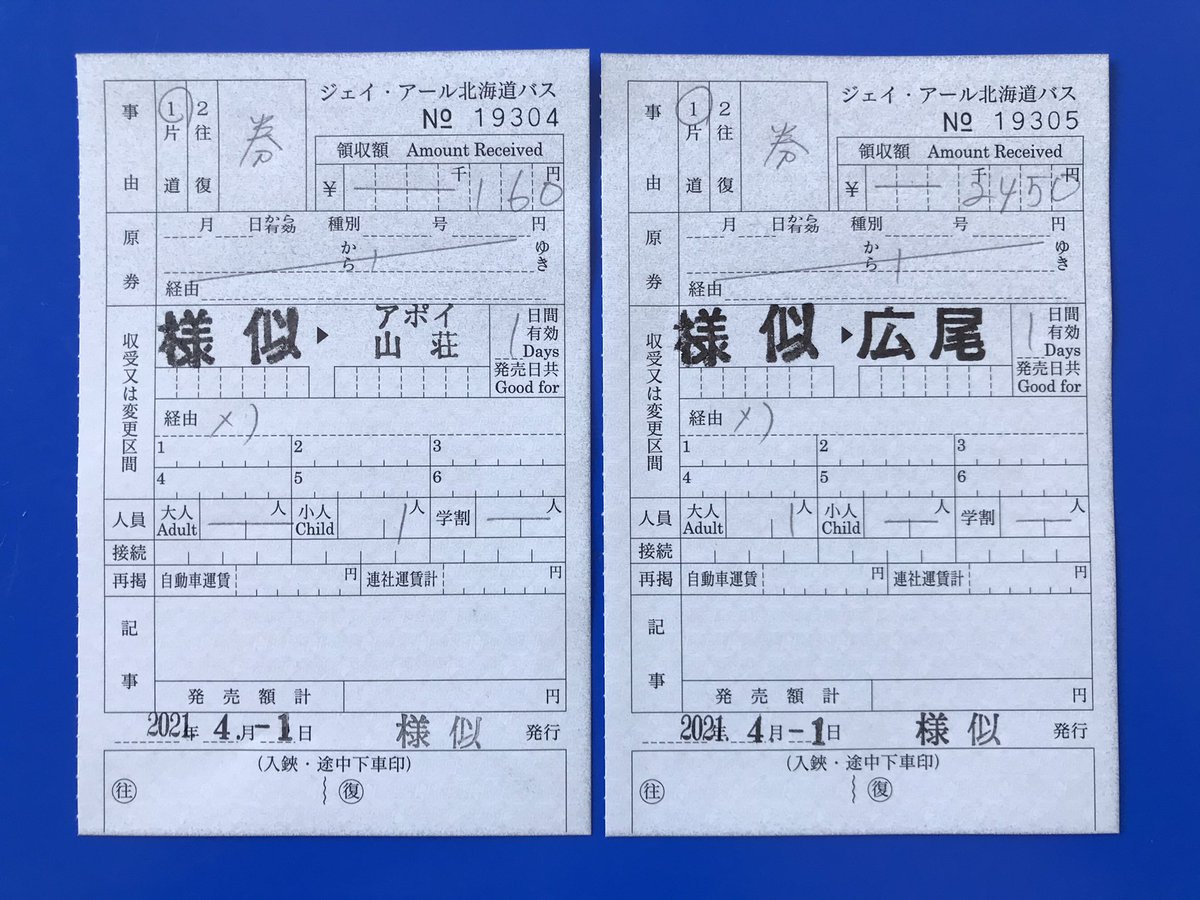 ジェイ・アール北海道バス
№ 19304
事由
①片道
2往復
券
領収額 Amount Received
¥ 千 円
160
原券
月 日から有効 種別 号 円
から ゆき
経由
収受又は変更区間
様似 ▶ アポイ山荘
1日間有効 Days
発売日共 Good for
経由 メ)
1 2 3
4 5 6
人員 大人 Adult 人 小人 Child 1人 学割 人
接続
再掲 自動車運賃 円 連社運賃計 円
記事
発売額計 円
2021年 4.月-1日 様似 発行
(入鋏・途中下車印)
㊟往 復
ジェイ・アール北海道バス
№ 19305
事由
①片道
2往復
券
領収額 Amount Received
¥ 千 円
2450
原券
月 日から有効 種別 号 円
から ゆき
経由
収受又は変更区間
様似 ▶ 広尾
1日間有効 Days
発売日共 Good for
経由 メ)
1 2 3
4 5 6
人員 大人 Adult 1人 小人 Child 人 学割 人
接続
再掲 自動車運賃 円 連社運賃計 円
記事
発売額計 円
2021年 4.月-1日 様似 発行
(入鋏・途中下車印)
往 復